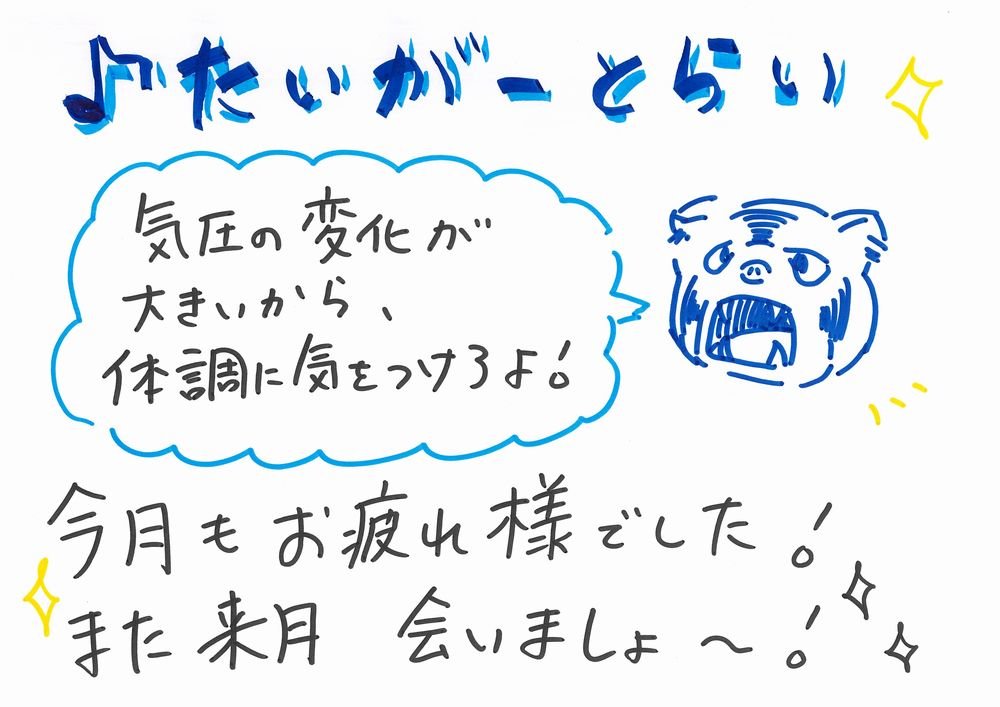 ♪たいがーとらい
気圧の変化が
大きいから、
体調に気をつけろよ!
今月もお疲れ様でした!
また来月 会いましょ〜!